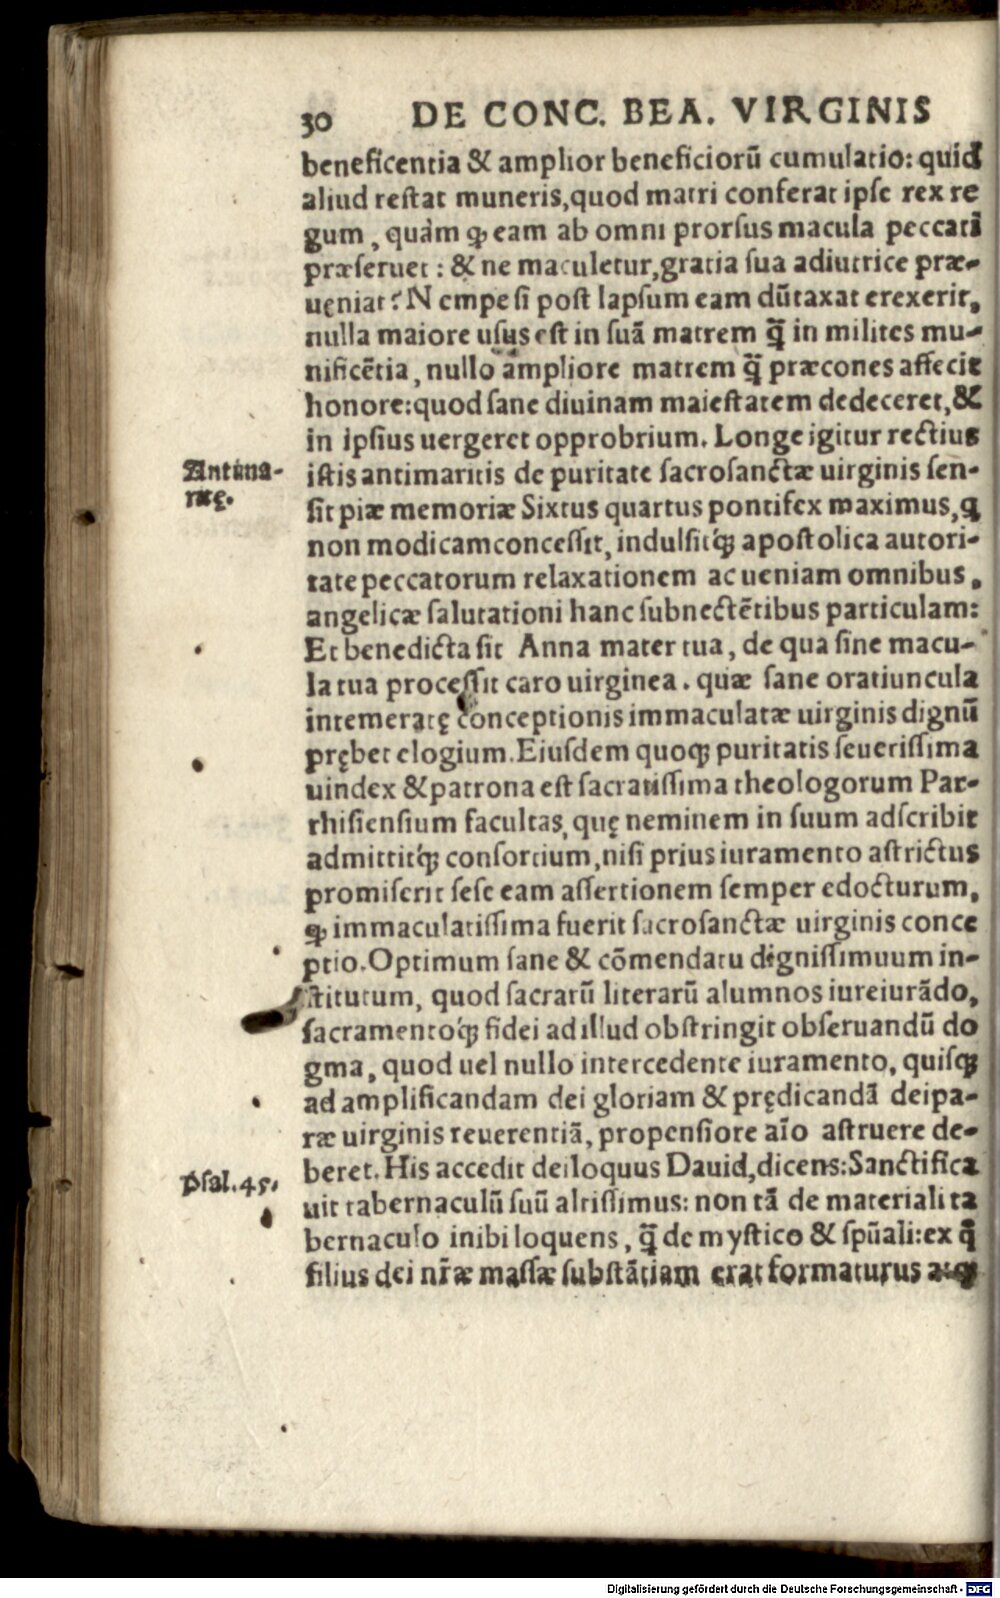 30 DE CONC. BEA. VIRGINIS
beneficentia & amplior beneficiorū cumulatio: quid
aliud reſtat muneris, quod matri conferat ipſe rex re
gum, quàm ꝙ eam ab omni prorſus macula peccati
præſeruet: & ne maculetur, gratia ſua adiutrice præ-
ueniat? Nempe ſi poſt lapſum eam dūtaxat erexerit,
nulla maiore uſus eſt in ſuā matrem q̄̃ in milites mu-
nificētia, nullo ampliore matrem q̄̃ præcones affecit
honore: quod ſane diuinam maieſtatem dedeceret, &
in ipſius uergeret opprobrium. Longe igitur rectius
Antima-
ritę.
iſtis antimaritis de puritate ſacroſanctæ uirginis ſen-
ſit piæ memoriæ Sixtus quartus pontifex maximus, q
non modicam conceſſit, indulſitq́; apoſtolica autori-
tate peccatorum relaxationem ac ueniam omnibus,
angelicæ ſalutationi hanc ſubnectētibus particulam:
Et benedicta ſit Anna mater tua, de qua ſine macu-
la tua proceſſit caro uirginea. quæ ſane oratiuncula
intemeratę conceptionis immaculatæ uirginis dignū
prębet elogium. Eiuſdem quoq; puritatis ſeueriſſima
uindex & patrona eſt ſacratiſſima theologorum Par-
rhiſienſium facultas, quę neminem in ſuum adſcribit
admittitq́; conſortium, niſi prius iuramento aſtrictus
promiſerit ſeſe eam aſſertionem ſemper edocturum,
ꝙ immaculatiſſima fuerit ſacroſanctæ uirginis conce
ptio. Optimum ſane & cōmendatu digniſſimuum in-
ſtitutum, quod ſacrarū literarū alumnos iureiurādo,
ſacramentoq́; fidei ad illud obſtringit obſeruandū do
gma, quod uel nullo intercedente iuramento, quiſq;
ad amplificandam dei gloriam & prędicandā deipa-
ræ uirginis reuerentiā, propenſiore aīo aſtruere de-
Pſal. 45.
beret. His accedit deiloquus Dauid, dicens: Sanctifica
uit tabernaculū ſuū altiſſimus: non tā de materiali ta
bernaculo inibi loquens, q̄̃ de myſtico & ſpūali: ex q̄
filius dei nr̄æ maſſæ ſubſtātiam erat formaturus atq;
Digitalisierung gefördert durch die Deutsche Forschungsgemeinschaft - DFG